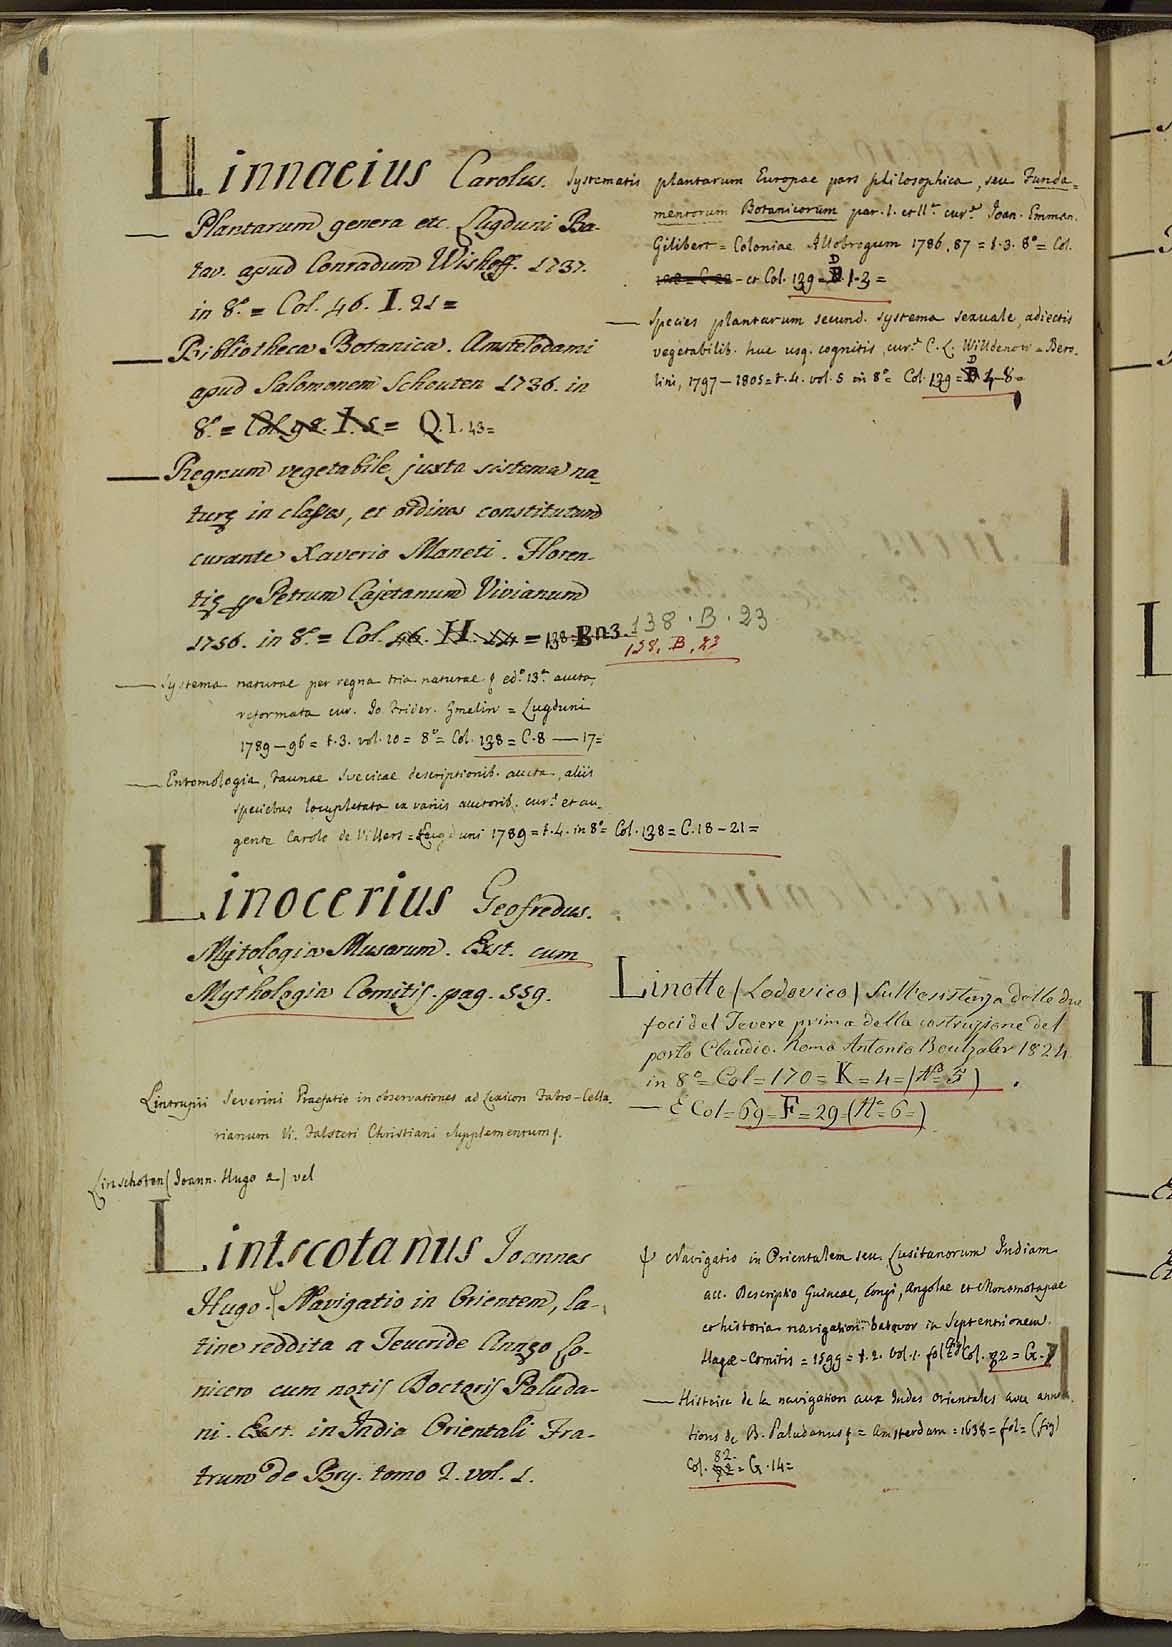 Linnaeius Carolus.
— Plantarum genera etc. Lugduni Ba-
tav. apud Conradum Wishoff. 1737.
in 8.° = Col. 46. I. 21 =
— Bibliotheca Botanica. Amstelodami
apud Salomonem Schouten 1736. in
8.° = Col. 98. I. 5 = Q. I. 43 =
— Regnum vegetabile juxta sistema na-
turę in classes, et ordines constitutum
curante Xaverio Maneti. Floren-
tię p Petrum Cajetanum Vivianum
1756. in 8.° = Col. 46. H. 24 = 138 = B n3.
138 . B . 23
138. B. 23
— Systema naturae per regna tria naturae ed.° 13.ª aucta,
reformata cur. Io. Frider. Gmelin = Lugduni
1789 – 96 = t. 3. vol. 10 = 8° = Col. 138 = C. 8 — 17 =
— Entomologia, Faunae Svecicae descriptionib. aucta, aliis
speciebus locupletata ex variis auctorib. cur.e et au-
gente Carolo de Villers = Lugduni 1789 = t. 4. in 8° = Col. 138 = C. 18 – 21 =
Systematis plantarum Europae pars philosophica, seu Funda=
mentorum Botanicorum par. I. et II.ª cur.e Joan. Emman.
Gilibert = Coloniae Allobrogum 1786. 87 = t. 3. 8° = Col.
128 = C. 22 – et Col. 139 = D B. 1-3 =
— Species plantarum secund. systema sexuale, adiectis
vegetabilib. huc usq. cognitis, cur.e C. L. Willdenow = Bero-
lini, 1797 – 1805 = t. 4. vol. 5 in 8° = Col. 139 = D B 4-8 =
Linocerius Geofredus.
Mytologia Musarum. Exst. cum
Mythologia Comitis. pag. 559.
Linotte (Lodovico) Sull'esistenza delle due
foci del Tevere prima della costruzione del
porto Claudio. Roma Antonio Boulzaler 1824
in 8° = Col = 170 = K = 4 = (N° 5)
— E Col = 69 = F = 29 (N° = 6 =)
Lintrupii Severini Praefatio in observationes ad Lexicon Fabro-Cella-
rianum Vi. Falsteri Christiani Supplementum
Linschoten (Joann. Hugo a) vel
Lintscotanus Joannes
Hugo. ψ Navigatio in Orientem, la-
tine reddita a Teucride Annęo Lo-
nicero cum notis Doctoris Paluda-
ni. Exst. in India Orientali Fra-
trum de Bry. tomo 2. vol. 1.
ψ Navigatio in Orientalem seu Lusitanorum Indiam
acc. Descriptio Guineae, Congi, Angolae et Monomotapae
et historia navigation. batavor in Septentrionem.
Hagæ-Comitis = 1599 = t. 2. vol. 1. fol. = (fig) Col. 82 = G. 7
— Histoire de la navigation aux Indes orientales avec annota
tions de B. Paludanus = Amsterdam = 1638 = fol = (fig)
Col. 82 = G. 14 =